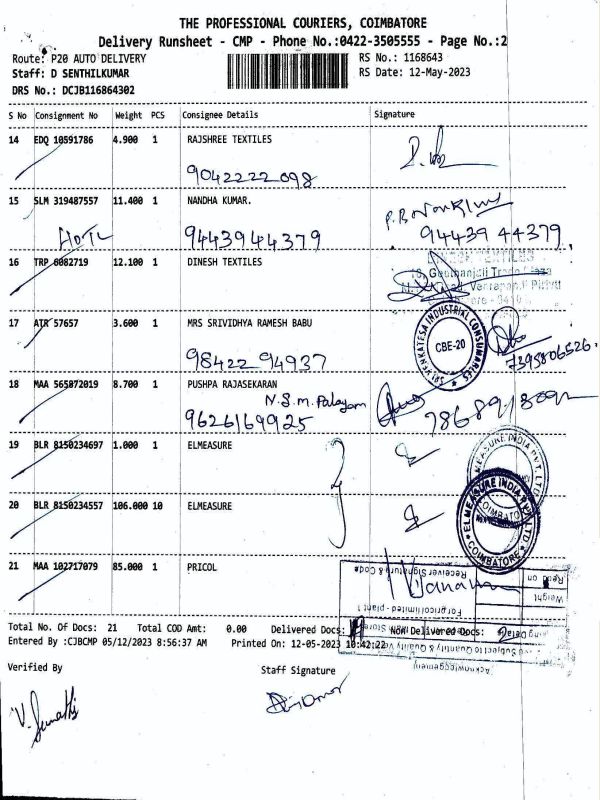 THE PROFESSIONAL COURIERS, COIMBATORE
Delivery Runsheet - CMP - Phone No.:0422-3505555 - Page No.:2
Route: P20 AUTO DELIVERY
RS No.: 1168643
Staff: D SENTHILKUMAR
RS Date: 12-May-2023
DRS No.: DCJB116864302
S No Consignment No Weight PCS Consignee Details Signature
14 EDQ 10591786 4.900 1 RAJSHREE TEXTILES
9042222098
15 SLM 319487557 11.400 1 NANDHA KUMAR.
9443944379 94439 44379
16 TRP 6082719 12.100 1 DINESH TEXTILES
17 ATR 57657 3.600 1 MRS SRIVIDHYA RAMESH BABU
98422 94937 7395806526
SRI VENKATESA INDUSTRIAL CONSUMABLES
CBE-20
18 MAA 565872019 8.700 1 PUSHPA RAJASEKARAN
N.S.m. Palayam
9626169925
19 BLR 8150234697 1.000 1 ELMEASURE
20 BLR 8150234557 106.000 10 ELMEASURE
ELMEASURE INDIA PVT. LTD
COIMBATORE
21 MAA 102717079 85.000 1 PRICOL
Receiver Signature & Code
Read on
Weight
For pricol limited-plant 1
Acknowledgement
Total No. Of Docs: 21 Total COD Amt: 0.00 Delivered Docs: 19 Non Delivered Docs: 2
Entered By :CJBCMP 05/12/2023 8:56:37 AM Printed On: 12-05-2023 10:42:22
Verified By
Staff Signature